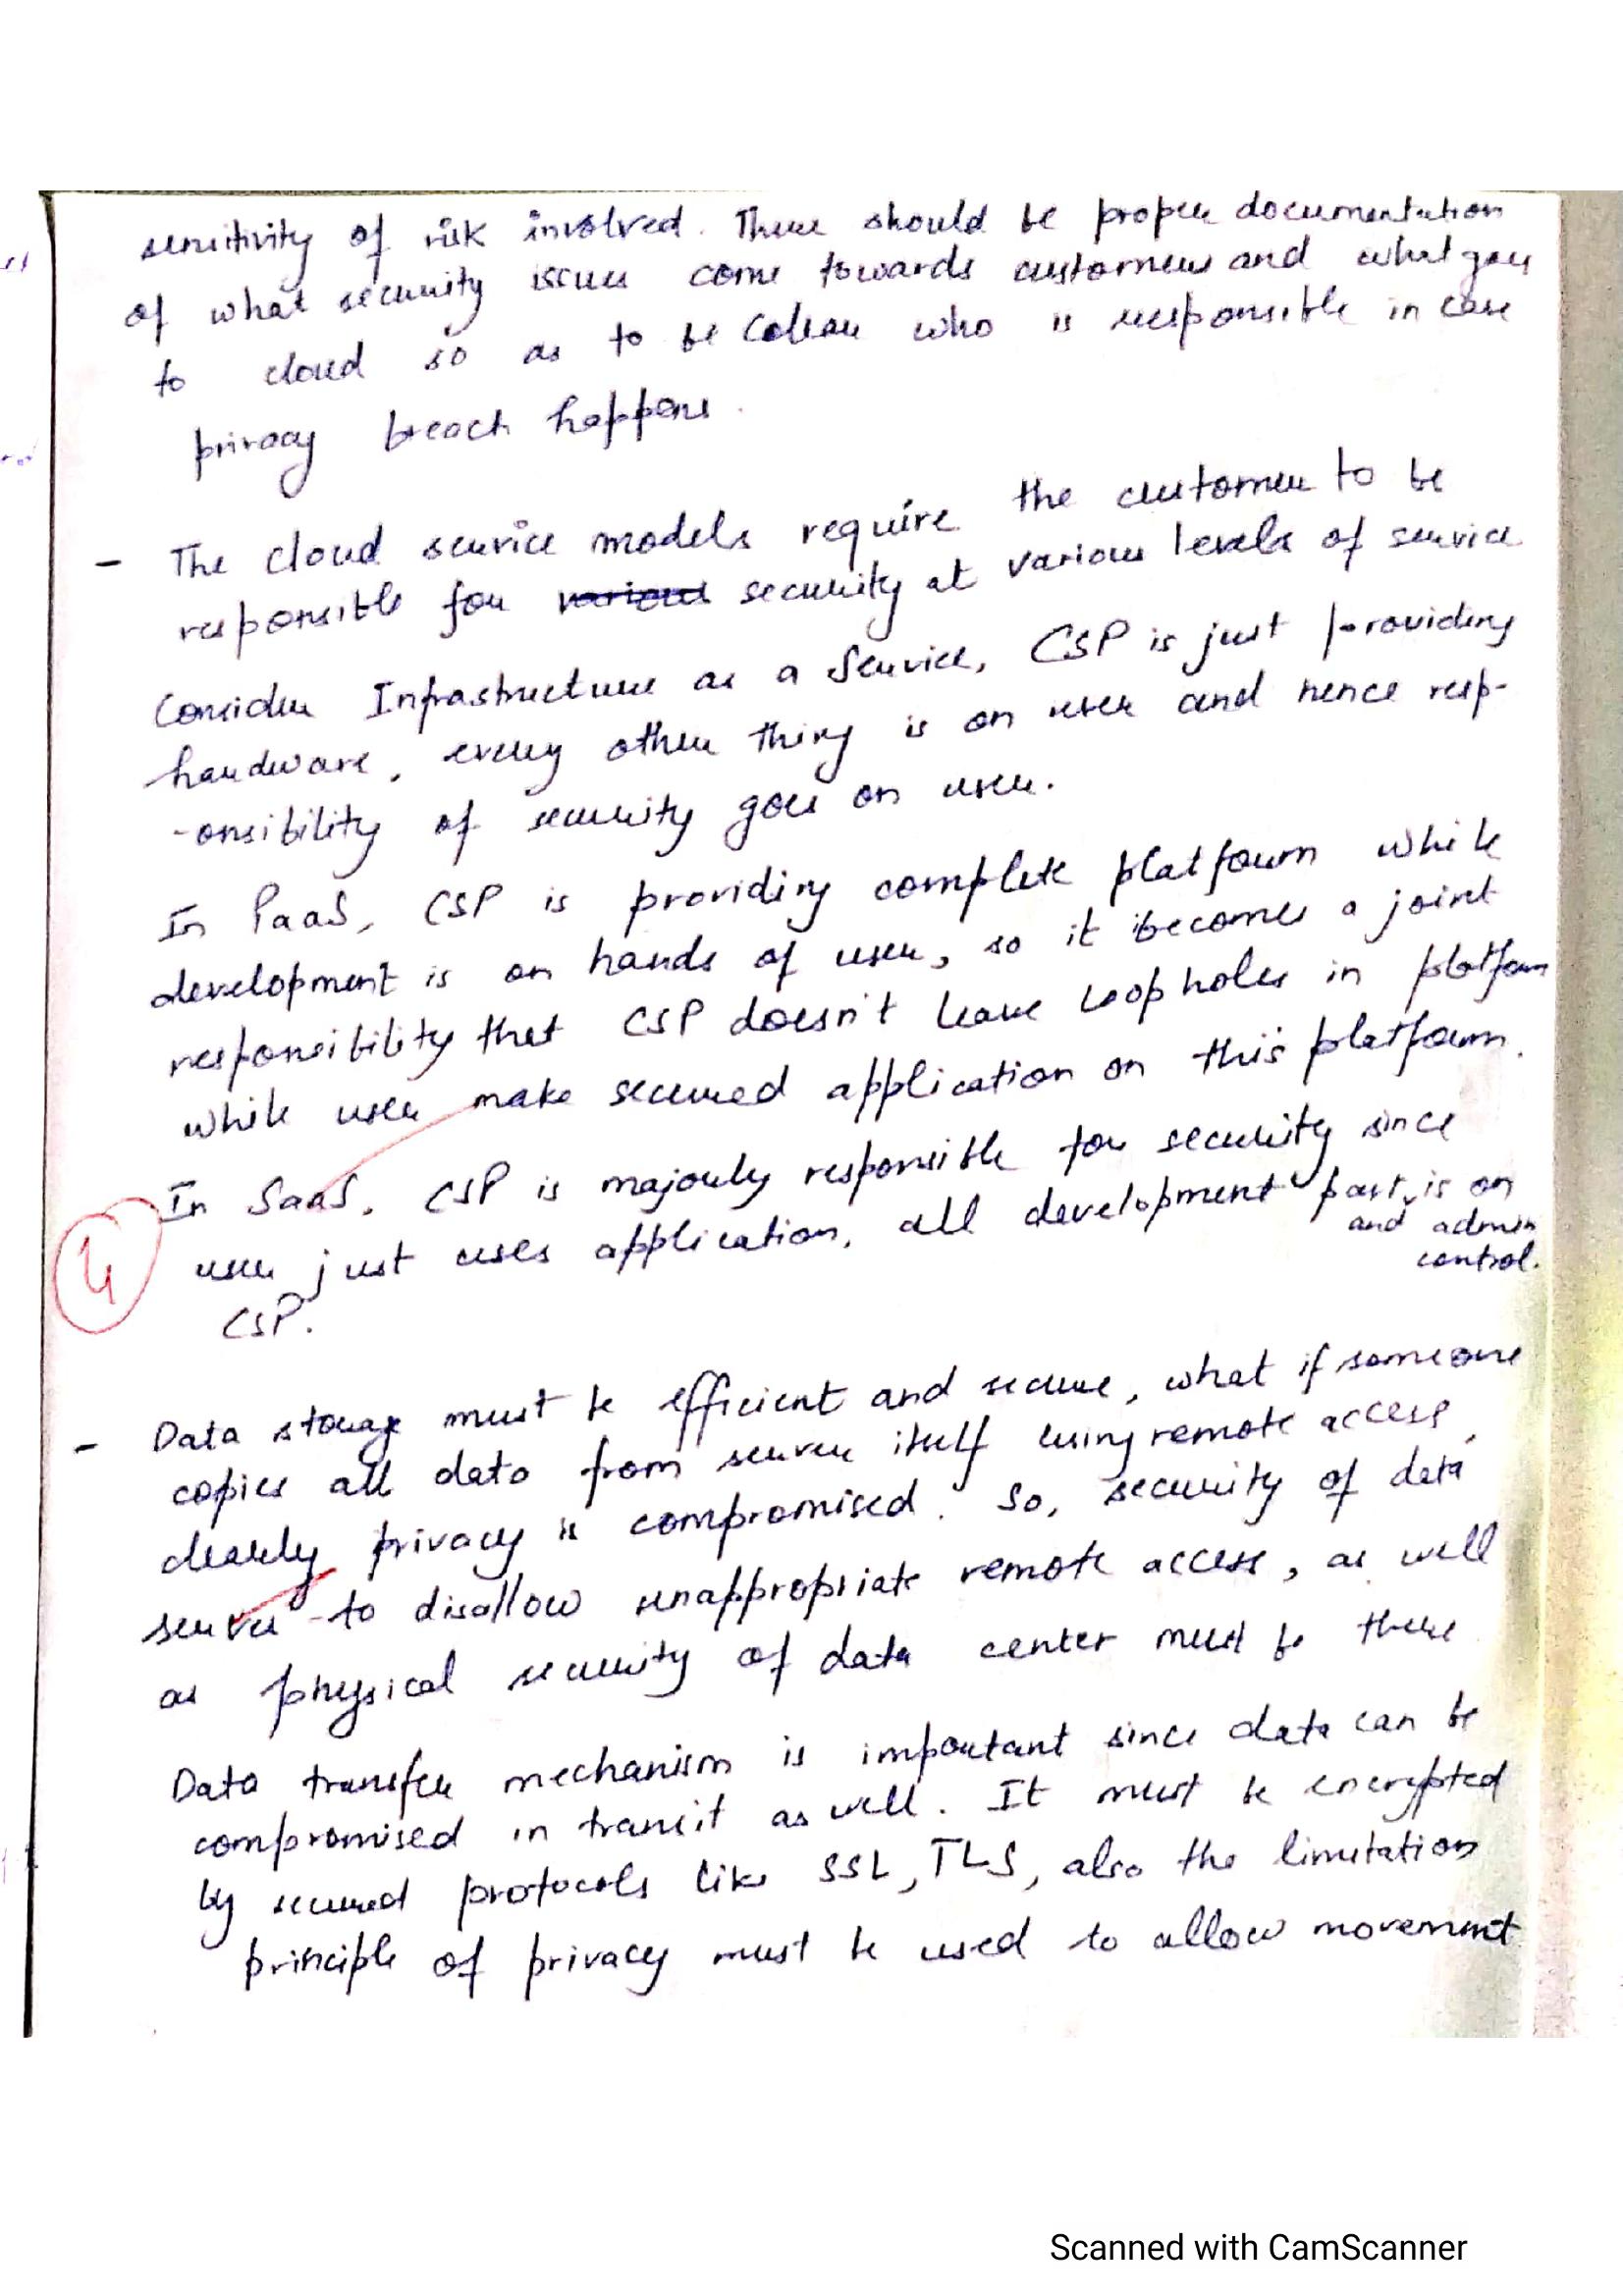 sensitivity of risk involved. There should be proper documentation
of what security issues come towards customers and what goes
to cloud so as to be clear who is responsible in case
privacy breach happens.
- The cloud service models require the customer to be
responsible for various security at various levels of service
Consider Infrastructure as a Service, CSP is just providing
hardware, every other thing is on user and hence resp-
-onsibility of security goes on user.
In PaaS, CSP is providing complete platform while
development is on hands of user, so it becomes a joint
responsibility that CSP doesn't leave loopholes in platform
while user make secured application on this platform.
In SaaS, CSP is majorly responsible for security since
user just uses application, all development part is on
and admin
control.
4
CSP.
- Data storage must be efficient and secure, what if someone
copies all data from server itself using remote access,
clearly privacy is compromised. So, security of data
server to disallow unappropriate remote access, as well
as physical security of data center must be there
Data transfer mechanism is important since data can be
compromised in transit as well. It must be encrypted
by secured protocols like SSL, TLS, also the limitation
principle of privacy must be used to allow movement
Scanned with CamScanner